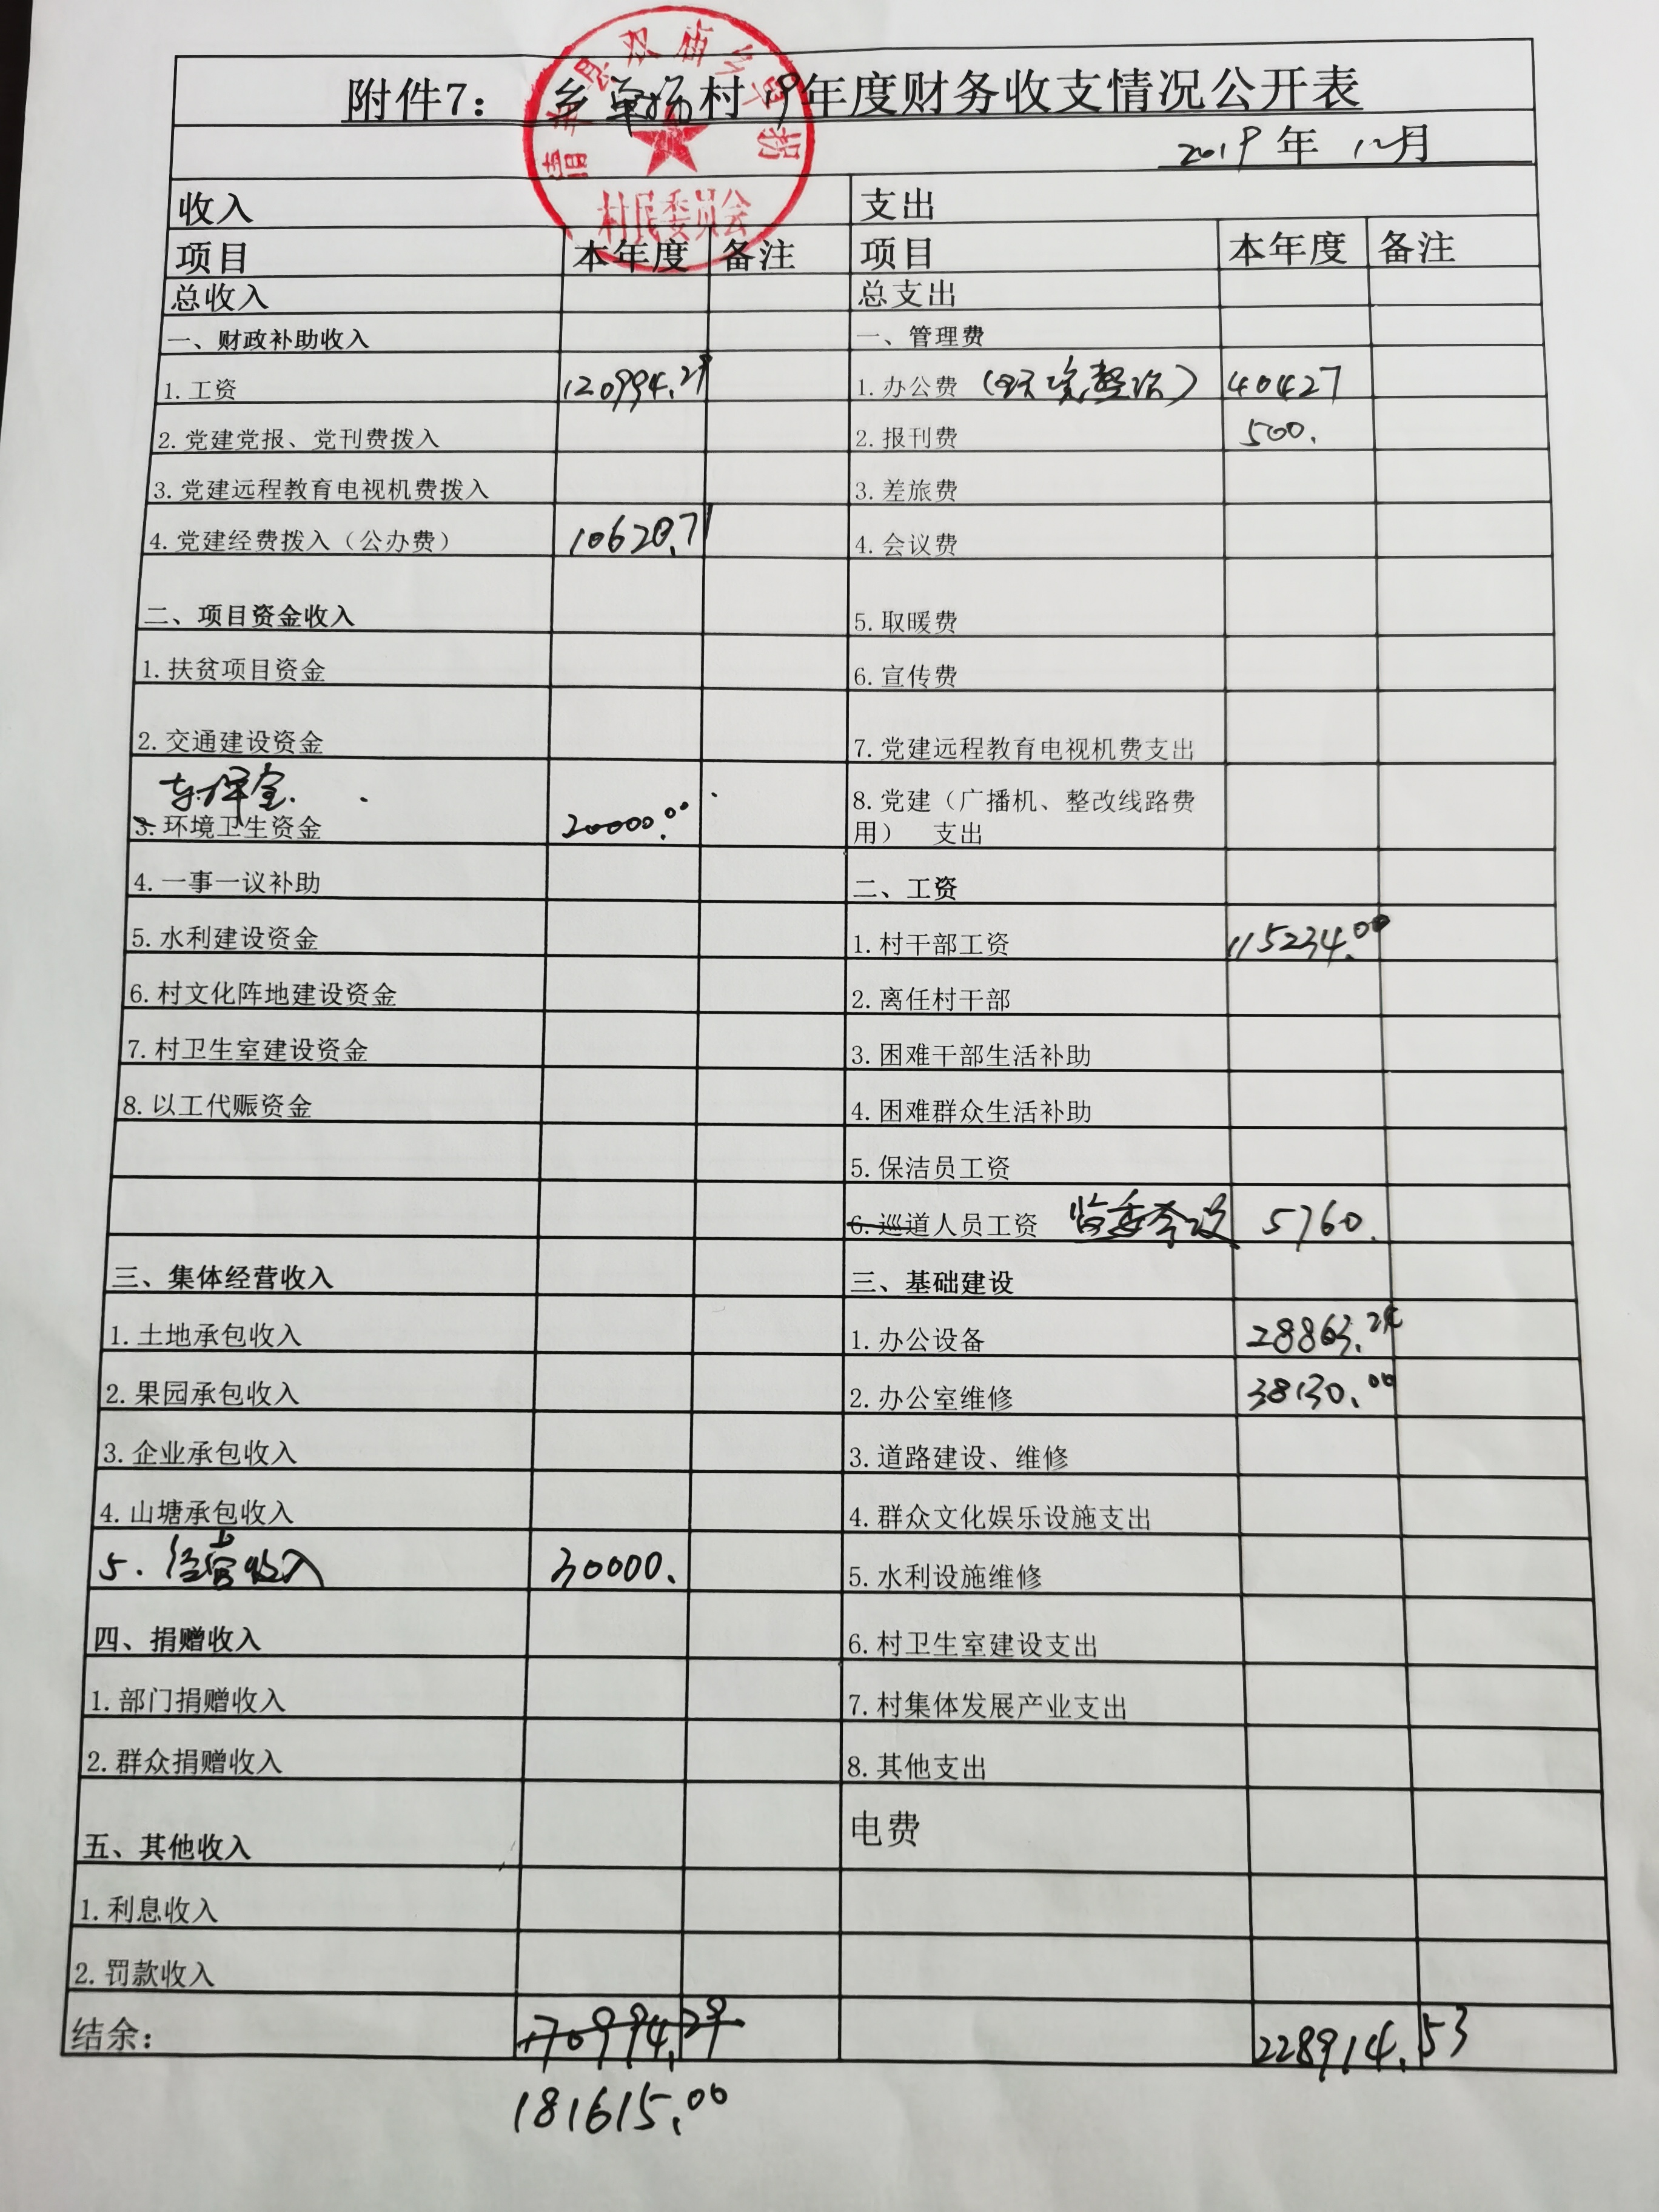 附件7： 乡单拐村19年度财务收支情况公开表
双庙乡单拐
村民委员会
2019年 12月
收入 支出
项目 本年度 备注 项目 本年度 备注
总收入 总支出
一、财政补助收入 一、管理费
1.工资 120994.29 1.办公费 40427
2.党建党报、党刊费拨入 2.报刊费 500.
3.党建远程教育电视机费拨入 3.差旅费
4.党建经费拨入（公办费） 10620.71 4.会议费
二、项目资金收入 5.取暖费
1.扶贫项目资金 6.宣传费
2.交通建设资金 7.党建远程教育电视机费支出
3.环境卫生资金 20000.00 8.党建（广播机、整改线路费
用） 支出
4.一事一议补助 二、工资
5.水利建设资金 1.村干部工资 115234.00
6.村文化阵地建设资金 2.离任村干部
7.村卫生室建设资金 3.困难干部生活补助
8.以工代赈资金 4.困难群众生活补助
5.保洁员工资
6.巡道人员工资 5760.
三、集体经营收入 三、基础建设
1.土地承包收入 1.办公设备
2.果园承包收入 2.办公室维修 38130.00
3.企业承包收入 3.道路建设、维修
4.山塘承包收入 4.群众文化娱乐设施支出
5.经营收入 30000. 5.水利设施维修
四、捐赠收入 6.村卫生室建设支出
1.部门捐赠收入 7.村集体发展产业支出
2.群众捐赠收入 8.其他支出
五、其他收入 电费
1.利息收入
2.罚款收入
结余： 170994.29 228914.53
181615.00